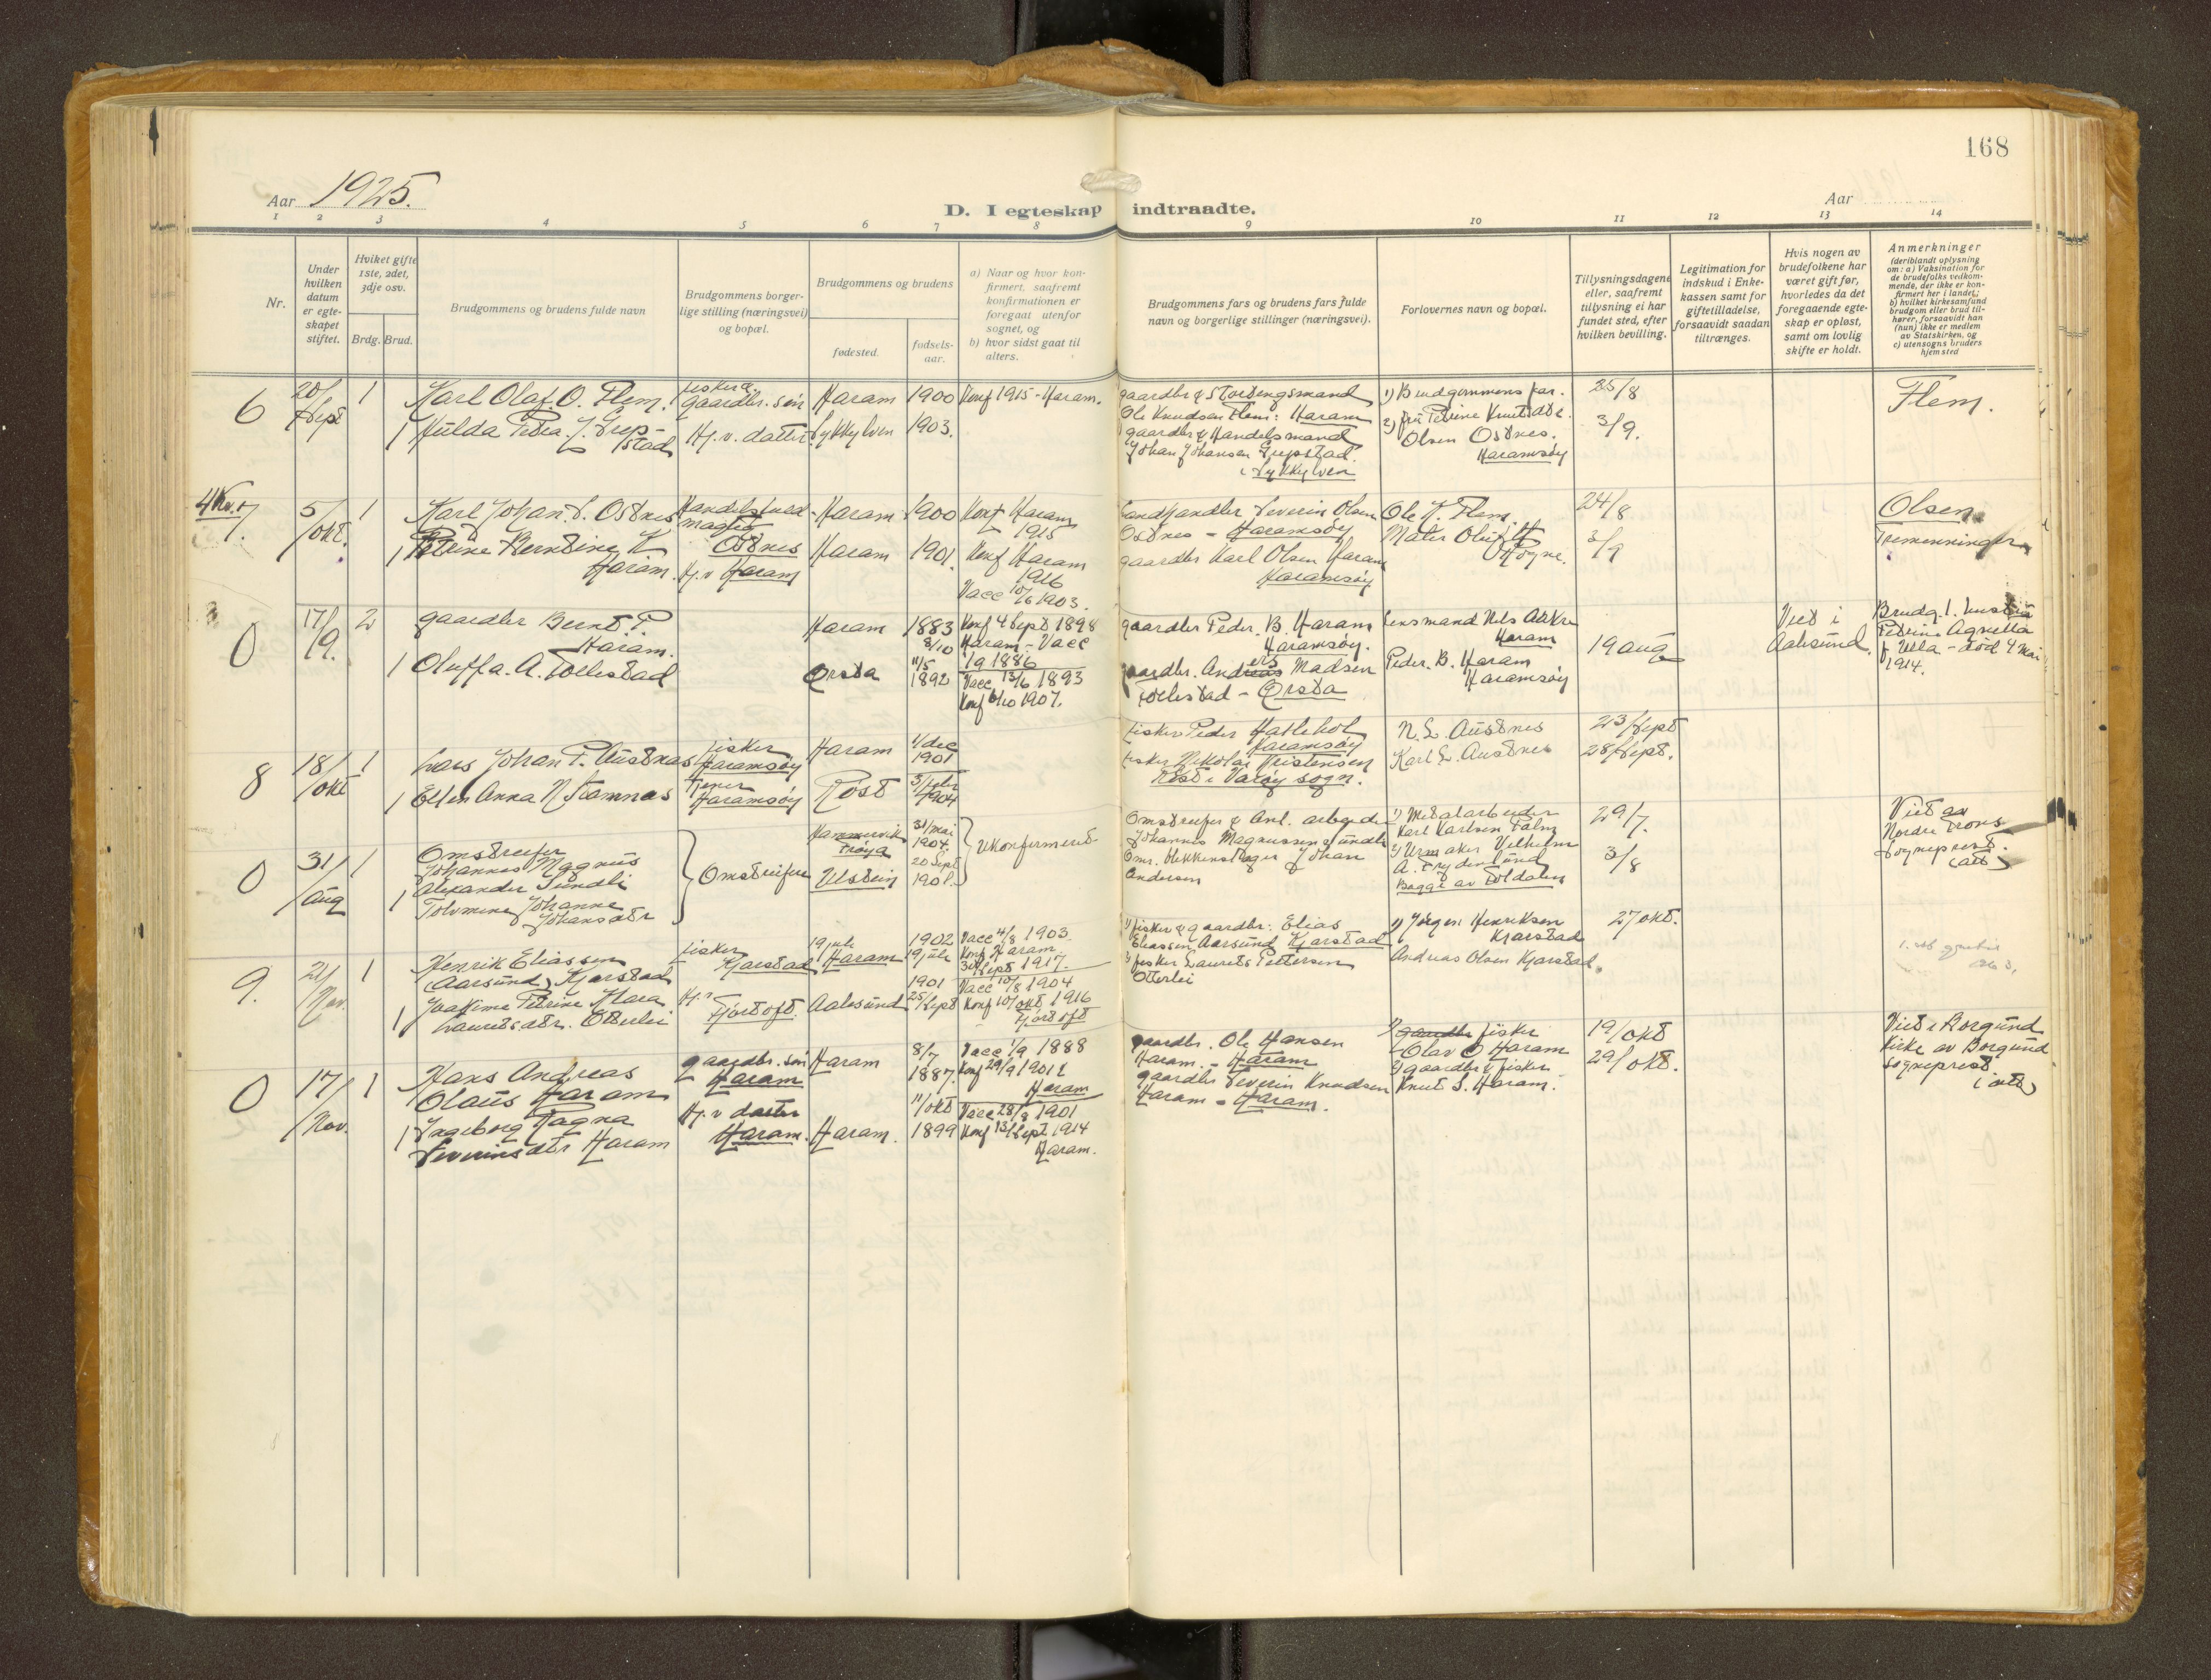 168
Aar 1925.
D. I egteskap indtraadte.
Aar
1 2 3 4 5 6 7 8 9 10 11 12 13 14
Nr.
Under hvilken datum er egteskapet stiftet.
Hviket gifte 1ste, 2det, 3dje osv.
Brdg. Brud.
Brudgommens og brudens fulde navn
Brudgommens borgerlige stilling (næringsvei) og bopæl.
Brudgommens og brudens
fødested.
fødselsaar.
a) Naar og hvor konfirmert, saafremt konfirmationen er foregaat utenfor sognet, og
b) hvor sidst gaat til alters.
Brudgommens fars og brudens fars fulde navn og borgerlige stillinger (næringsvei).
Forlovernes navn og bopæl.
Tillysningsdagene eller, saafremt tillysning ei har fundet sted, efter hvilken bevilling.
Legitimation for indskud i Enkekassen samt for giftetilladelse, forsaavidt saadan tiltrænges.
Hvis nogen av brudefolkene har været gift før, hvorledes da det foregaaende egteskap er opløst, samt om lovlig skifte er holdt.
Anmerkninger
(deriblandt oplysning om: a) Vaksination for de brudefolks vedkommende, der ikke er konfirmert her i landet; b) hvilket kirkesamfund brudgom eller brud tilhører, forsaavidt han (hun) ikke er medlem av Statskirken, og c) utensogns bruders hjemsted
6 20/Sept 1 Karl Olaf O. Flem. fisker & gaardbr. søn Haram 1900 Konf 1915 - Haram.
1 Hulda Petra J. Grepstad Hj.v. datter Sykkylven 1903.
gaardbr & Stortingsmand
Ole Knudsen Flem: Haram
gaardbr & Handelsmand
Johan Johansen Grepstad.
i Sykkylven
1) Brudgommens far.
2) fru Petrine Knutsdtr.
Olsen Ostnes.
Haramsøy
25/8
3/9.
Flem.
7. 5/okt. 1 Karl Johan S. Ostnes Ostnes Haram 1900 Konf Haram 1915
1 Petrine Berntine K Haram. Hj.v Haram Haram 1901. Konf Haram 1916
Vacc 10/6 1903.
Landhandler Severin Olsen
Ostnes - Haramsøy
gaardbr Karl Olsen Haram
Haramsøy
Ole K. Flem.
24/8
3/9
Olsen
Tremenninger
0 17/9. 2 gaardbr Bernt P. Haram. Haram 1883 8/10 Konf 4 Sept 1898
Haram - Vacc
1/9 1886
1 Oluffa. A. Follestad Ørsta 11/5 1892 Vacc 13/6 1893
Konf 6/10 1907.
gaardbr Peder. B. Haram
Haramsøy.
gaardbr. Anders Madsen
Follestad - Ørsta
Lensmand Nils Aakre
Haram
Peder. B. Haram
Haramsøy
19 aug
Viet i Aalesund.
Brudg. 1. hustru
Petrine Agnetta
f Ulla - død 4 Mai
1914.
8 18/okt 1 Lars Johan P. Austnes fisker Haramsøy Haram 4/dec 1901
1 Ellen Anna N Stamnes Haramsøy Røst 3/febr 1904
fisker Peder Hatlehol
Haramsøy
fisker Nikolai Kristensen
Røst i Værøy sogn.
N. L. Austnes
Karl L. Austnes
23/Sept
28/Sept.
0 31/aug 1 Omstreifer
Johannes Magnus
Alexander Sundli
1 Tolvmine Johanne
Johansdtr
Omstreifere
Hammervik
Frøya
Ulstein
31/mai 1904.
20 Sept 1901.
Ukonfirmert.
Omstreifer & Anl. arbeider
Johannes Magnussen Sundli
Omr. blikkenslager Johan
Andersen
1) Metalarbeider
Karl Karlsen Palm
2) Urmaker Vilhelm
A. Frydenlund
Begge av Foldalen
29/7.
3/8
Viet av
Nordre Frons
Sogneprest.
(att)
9. 21/Nov. 1 Henrik Eliassen
(Aarsund) Kjerstad fisker Kjærstad 19 juli Haram 1902 19 juli Vacc 4/8 1903
Konf Haram
30/Sept 1917.
1 Joakime Petrine Klara
Lauritsdtr. Otterlei Hj.v Fjørtoft. Aalesund 1901 25/Sept Vacc 10/8 1904
Konf 10/okt 1916
Fjørtoft
1) fisker & gaardbr: Elias
Eliassen Aarsund Kjerstad
2) fisker Laurits Pettersen
Otterlei
1) Jørgen Henriksen
Kjærstad
Andreas Olsen Kjærstad.
27 okt.
0 17/Nov. 1 Hans Andreas
Olaus Haram gaardbr. søn Haram Haram 8/7 1887. Vacc 1/9 1888
Konf 29/9 1901
Haram
1 Ingeborg Ragna
Severinsdtr Haram Hj.v datter Haram. Haram. 11/okt 1899 Vacc 28/8 1901
Konf 13/Sept 1914
Haram.
gaardbr. Ole Hansen
Haram. - Haram
gaardbr Severin Knudsen
Haram - Haram.
1) gaardbr fisker
Olav O Haram
2) gaardbr & fisker
Knut S. Haram.
19/okt
29/okt.
Viet i Borgund
Kirke av Borgund
sogneprest
(att)